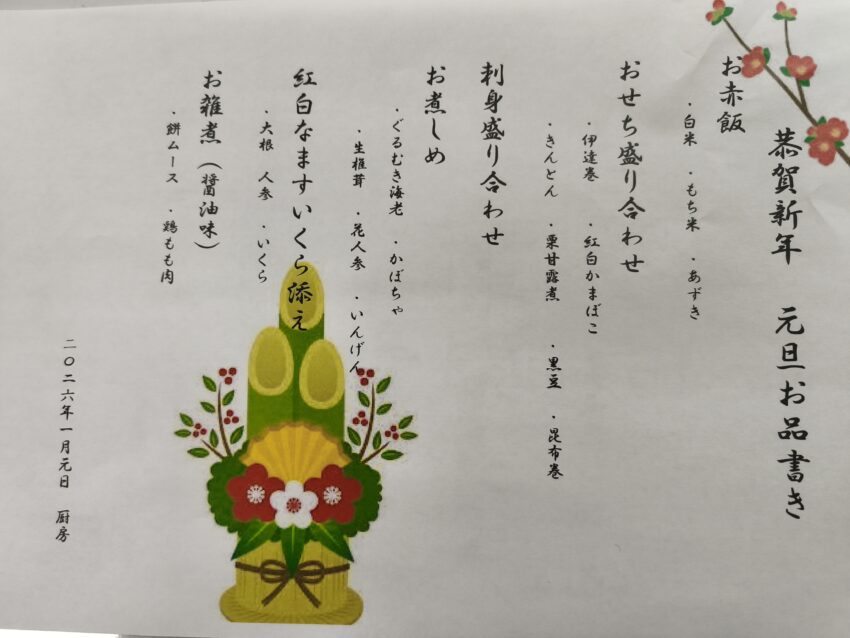 恭賀新年　元旦お品書き
お赤飯
・白米　・もち米　・あずき
おせち盛り合わせ
・伊達巻　・紅白かまぼこ
・きんとん　・栗甘露煮　・黒豆　・昆布巻
刺身盛り合わせ
お煮しめ
・ぐるむき海老　・かぼちゃ
・生椎茸　・花人参　・いんげん
紅白なますいくら添え
・大根　人参　・いくら
お雑煮（醤油味）
・餅ムース　・鶏もも肉
二〇二六年一月元日　厨房